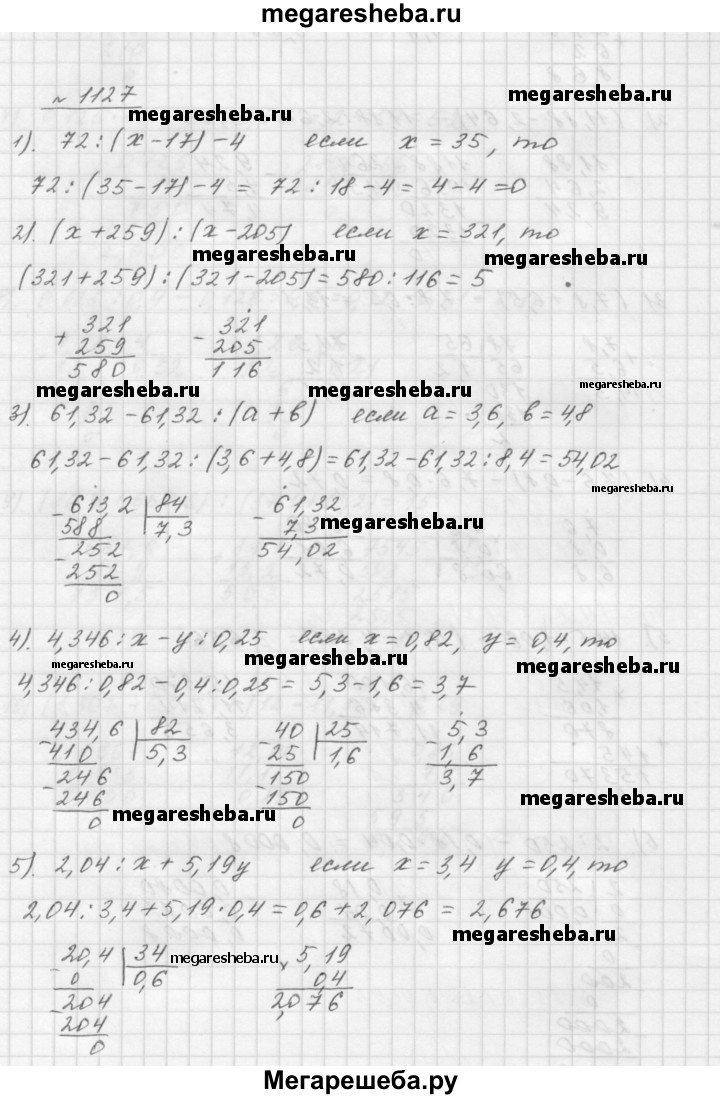 megaresheba.ru
№ 1127
megaresheba.ru megaresheba.ru
1). 72 : (x - 17) - 4 если x = 35, то
72 : (35 - 17) - 4 = 72 : 18 - 4 = 4 - 4 = 0
2). (x + 259) : (x - 205) если x = 321, то
megaresheba.ru megaresheba.ru
(321 + 259) : (321 - 205) = 580 : 116 = 5
+ 321 - 321
259 205
580 116
megaresheba.ru megaresheba.ru megaresheba.ru
3). 61,32 - 61,32 : (a + b) если a = 3,6, b = 4,8
61,32 - 61,32 : (3,6 + 4,8) = 61,32 - 61,32 : 8,4 = 54,02
megaresheba.ru
- 613,2 | 84 - 61,32
588 7,3 7,3 megaresheba.ru
- 252 54,02
252
0
4). 4,346 : x - y : 0,25 если x = 0,82, y = 0,4, то
megaresheba.ru megaresheba.ru megaresheba.ru
4,346 : 0,82 - 0,4 : 0,25 = 5,3 - 1,6 = 3,7
- 434,6 | 82 - 40 | 25 - 5,3
410 5,3 25 1,6 1,6
- 246 - 150 3,7
246 150
0 0
megaresheba.ru megaresheba.ru
5). 2,04 : x + 5,19y если x = 3,4 y = 0,4, то
2,04 : 3,4 + 5,19 · 0,4 = 0,6 + 2,076 = 2,676
megaresheba.ru
- 20,4 | 34 megaresheba.ru × 5,19
0 0,6 0,4
- 204 2,076
204
0
Мегарешеба.ру